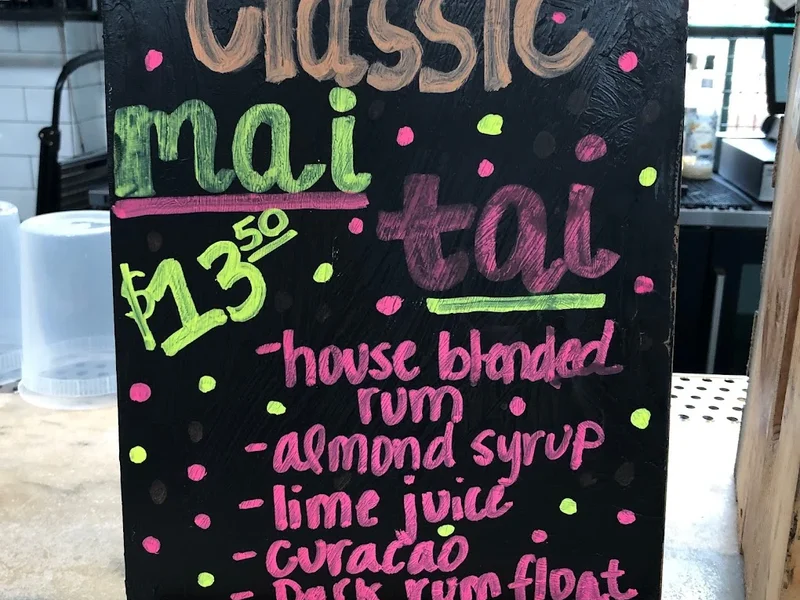 classic
mai
tai
$13.50
-house blended
rum
-almond syrup
-lime juice
-curacao
-Dark rum float